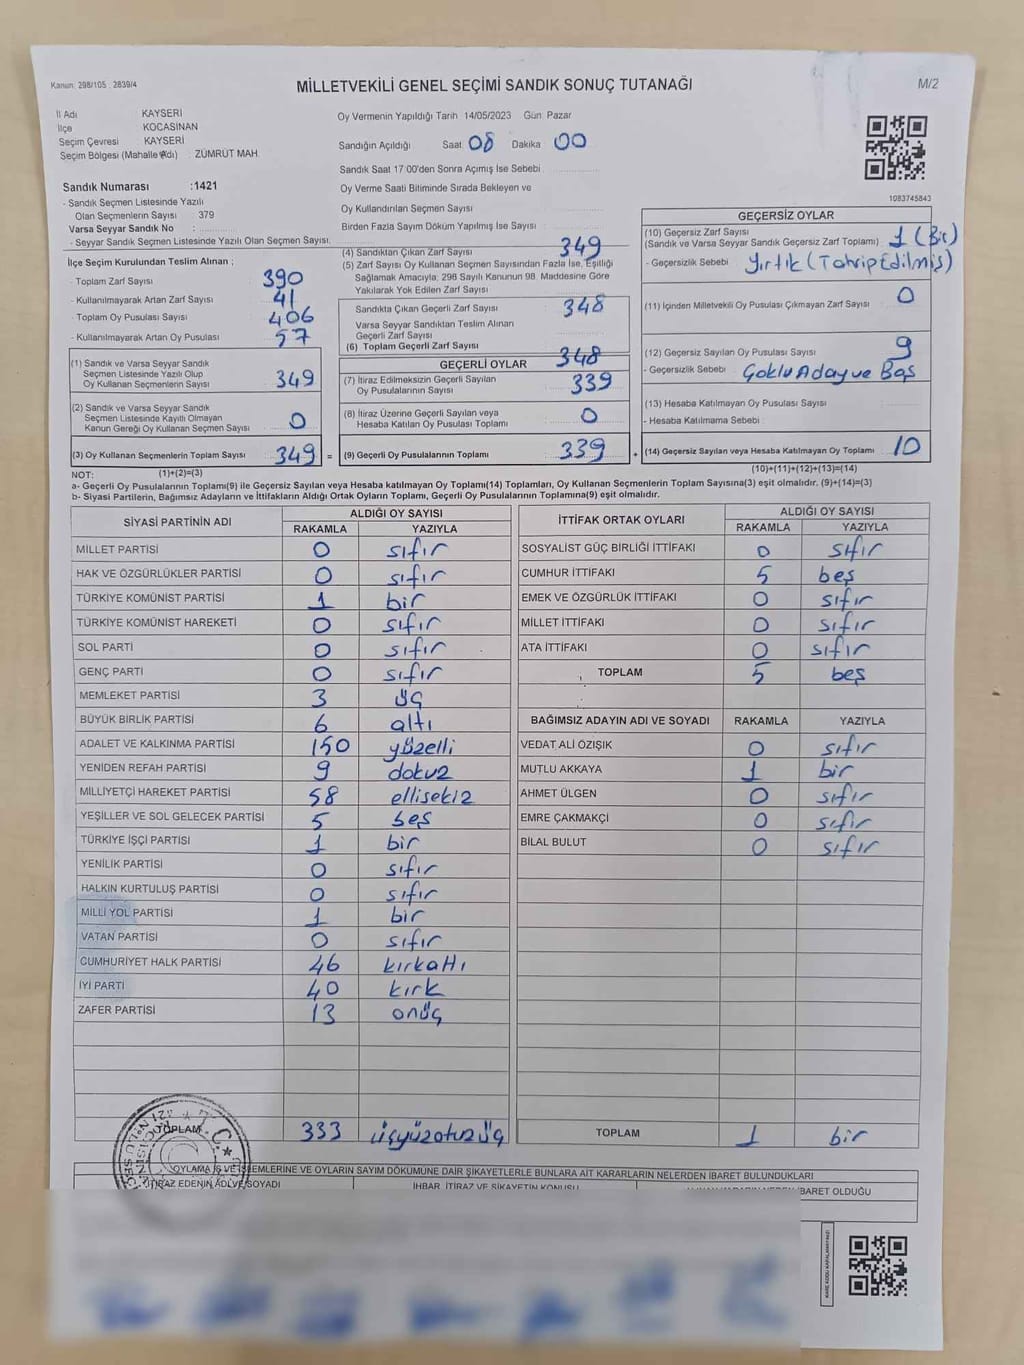 Kanun: 298/105 2839/4
MİLLETVEKİLİ GENEL SEÇİMİ SANDIK SONUÇ TUTANAĞI
M/2
İl Adı KAYSERİ
İlçe KOCASİNAN
Seçim Çevresi KAYSERİ
Seçim Bölgesi (Mahalle Adı) : ZÜMRÜT MAH.
Sandık Numarası :1421
- Sandık Seçmen Listesinde Yazılı
Olan Seçmenlerin Sayısı : 379
Varsa Seyyar Sandık No :
- Seyyar Sandık Seçmen Listesinde Yazılı Olan Seçmen Sayısı:
İlçe Seçim Kurulundan Teslim Alınan ;
- Toplam Zarf Sayısı 390
- Kullanılmayarak Artan Zarf Sayısı 41
- Toplam Oy Pusulası Sayısı 406
- Kullanılmayarak Artan Oy Pusulası 57
(1) Sandık ve Varsa Seyyar Sandık
Seçmen Listesinde Yazılı Olup
Oy Kullanan Seçmenlerin Sayısı 349
(2) Sandık ve Varsa Seyyar Sandık
Seçmen Listesinde Kayıtlı Olmayan
Kanun Gereği Oy Kullanan Seçmen Sayısı 0
(3) Oy Kullanan Seçmenlerin Toplam Sayısı 349 =
Oy Vermenin Yapıldığı Tarih 14/05/2023 Gün: Pazar
Sandığın Açıldığı Saat 08 Dakika 00
Sandık Saat 17 00'den Sonra Açımış İse Sebebi
Oy Verme Saati Bitiminde Sırada Bekleyen ve
Oy Kullandırılan Seçmen Sayısı
Birden Fazla Sayım Döküm Yapılmış İse Sayısı
(4) Sandıktan Çıkan Zarf Sayısı 349
(5) Zarf Sayısı Oy Kullanan Seçmen Sayısından Fazla İse, Eşitliği
Sağlamak Amacıyla; 298 Sayılı Kanunun 98. Maddesine Göre
Yakılarak Yok Edilen Zarf Sayısı
Sandıkta Çıkan Geçerli Zarf Sayısı 348
Varsa Seyyar Sandıktan Teslim Alınan
Geçerli Zarf Sayısı
(6) Toplam Geçerli Zarf Sayısı 348
GEÇERLİ OYLAR
(7) İtiraz Edilmeksizin Geçerli Sayılan
Oy Pusulalarının Sayısı 339
(8) İtiraz Üzerine Geçerli Sayılan veya
Hesaba Katılan Oy Pusulası Toplamı 0
(9) Geçerli Oy Pusulalarının Toplamı 339 +
1083745843
GEÇERSİZ OYLAR
(10) Geçersiz Zarf Sayısı
(Sandık ve Varsa Seyyar Sandık Geçersiz Zarf Toplamı) 1 (Bir)
- Geçersizlik Sebebi Yırtık (Tahrip Edilmiş)
(11) İçinden Milletvekili Oy Pusulası Çıkmayan Zarf Sayısı 0
(12) Geçersiz Sayılan Oy Pusulası Sayısı 9
- Geçersizlik Sebebi Çoklu Aday ve Boş
(13) Hesaba Katılmayan Oy Pusulası Sayısı
- Hesaba Katılmama Sebebi :
(14) Geçersiz Sayılan veya Hesaba Katılmayan Oy Toplamı 10
NOT: (1)+(2)=(3) (10)+(11)+(12)+(13)=(14)
a- Geçerli Oy Pusulalarının Toplamı(9) ile Geçersiz Sayılan veya Hesaba katılmayan Oy Toplamı(14) Toplamları, Oy Kullanan Seçmenlerin Toplam Sayısına(3) eşit olmalıdır. (9)+(14)=(3)
b- Siyasi Partilerin, Bağımsız Adayların ve İttifakların Aldığı Ortak Oyların Toplamı, Geçerli Oy Pusulalarının Toplamına(9) eşit olmalıdır.
SİYASİ PARTİNİN ADI ALDIĞI OY SAYISI
RAKAMLA YAZIYLA
MİLLET PARTİSİ 0 sıfır
HAK VE ÖZGÜRLÜKLER PARTİSİ 0 sıfır
TÜRKİYE KOMÜNİST PARTİSİ 1 bir
TÜRKİYE KOMÜNİST HAREKETİ 0 sıfır
SOL PARTİ 0 sıfır
GENÇ PARTİ 0 sıfır
MEMLEKET PARTİSİ 3 üç
BÜYÜK BİRLİK PARTİSİ 6 altı
ADALET VE KALKINMA PARTİSİ 150 yüzelli
YENİDEN REFAH PARTİSİ 9 dokuz
MİLLİYETÇİ HAREKET PARTİSİ 58 ellisekiz
YEŞİLLER VE SOL GELECEK PARTİSİ 5 beş
TÜRKİYE İŞÇİ PARTİSİ 1 bir
YENİLİK PARTİSİ 0 sıfır
HALKIN KURTULUŞ PARTİSİ 0 sıfır
MİLLİ YOL PARTİSİ 1 bir
VATAN PARTİSİ 0 sıfır
CUMHURİYET HALK PARTİSİ 46 kırkaltı
İYİ PARTİ 40 kırk
ZAFER PARTİSİ 13 onüç
TOPLAM 333 üçyüzotuzüç
İTTİFAK ORTAK OYLARI ALDIĞI OY SAYISI
RAKAMLA YAZIYLA
SOSYALİST GÜÇ BİRLİĞİ İTTİFAKI 0 sıfır
CUMHUR İTTİFAKI 5 beş
EMEK VE ÖZGÜRLÜK İTTİFAKI 0 sıfır
MİLLET İTTİFAKI 0 sıfır
ATA İTTİFAKI 0 sıfır
TOPLAM 5 beş
BAĞIMSIZ ADAYIN ADI VE SOYADI RAKAMLA YAZIYLA
VEDAT ALİ ÖZIŞIK 0 sıfır
MUTLU AKKAYA 1 bir
AHMET ÜLGEN 0 sıfır
EMRE ÇAKMAKÇI 0 sıfır
BİLAL BULUT 0 sıfır
TOPLAM 1 bir
OYLAMA İŞ VE İŞLEMLERİNE VE OYLARIN SAYIM DÖKÜMÜNE DAİR ŞİKAYETLERLE BUNLARA AİT KARARLARIN NELERDEN İBARET BULUNDUKLARI
İTİRAZ EDENİN ADI VE SOYADI İHBAR, İTİRAZ VE ŞİKAYETİN KONUSU İBARET OLDUĞU